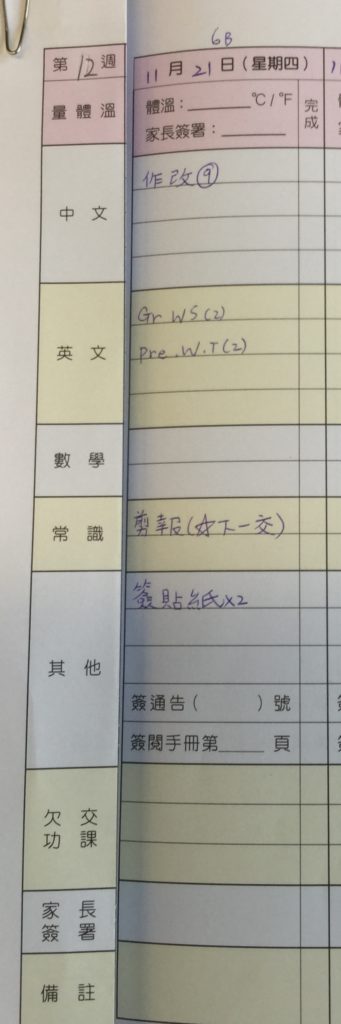 6B
第12週
11月21日(星期四)
量體溫
體溫：______°C/°F
家長簽署：______
完成
中文
作改⑨
英文
Gr WS(2)
Pre.W.T(2)
數學
常識
剪報(☆下一交)
其他
簽貼紙x2
簽通告( )號
簽閱手冊第____頁
欠交功課
家長簽署
備註